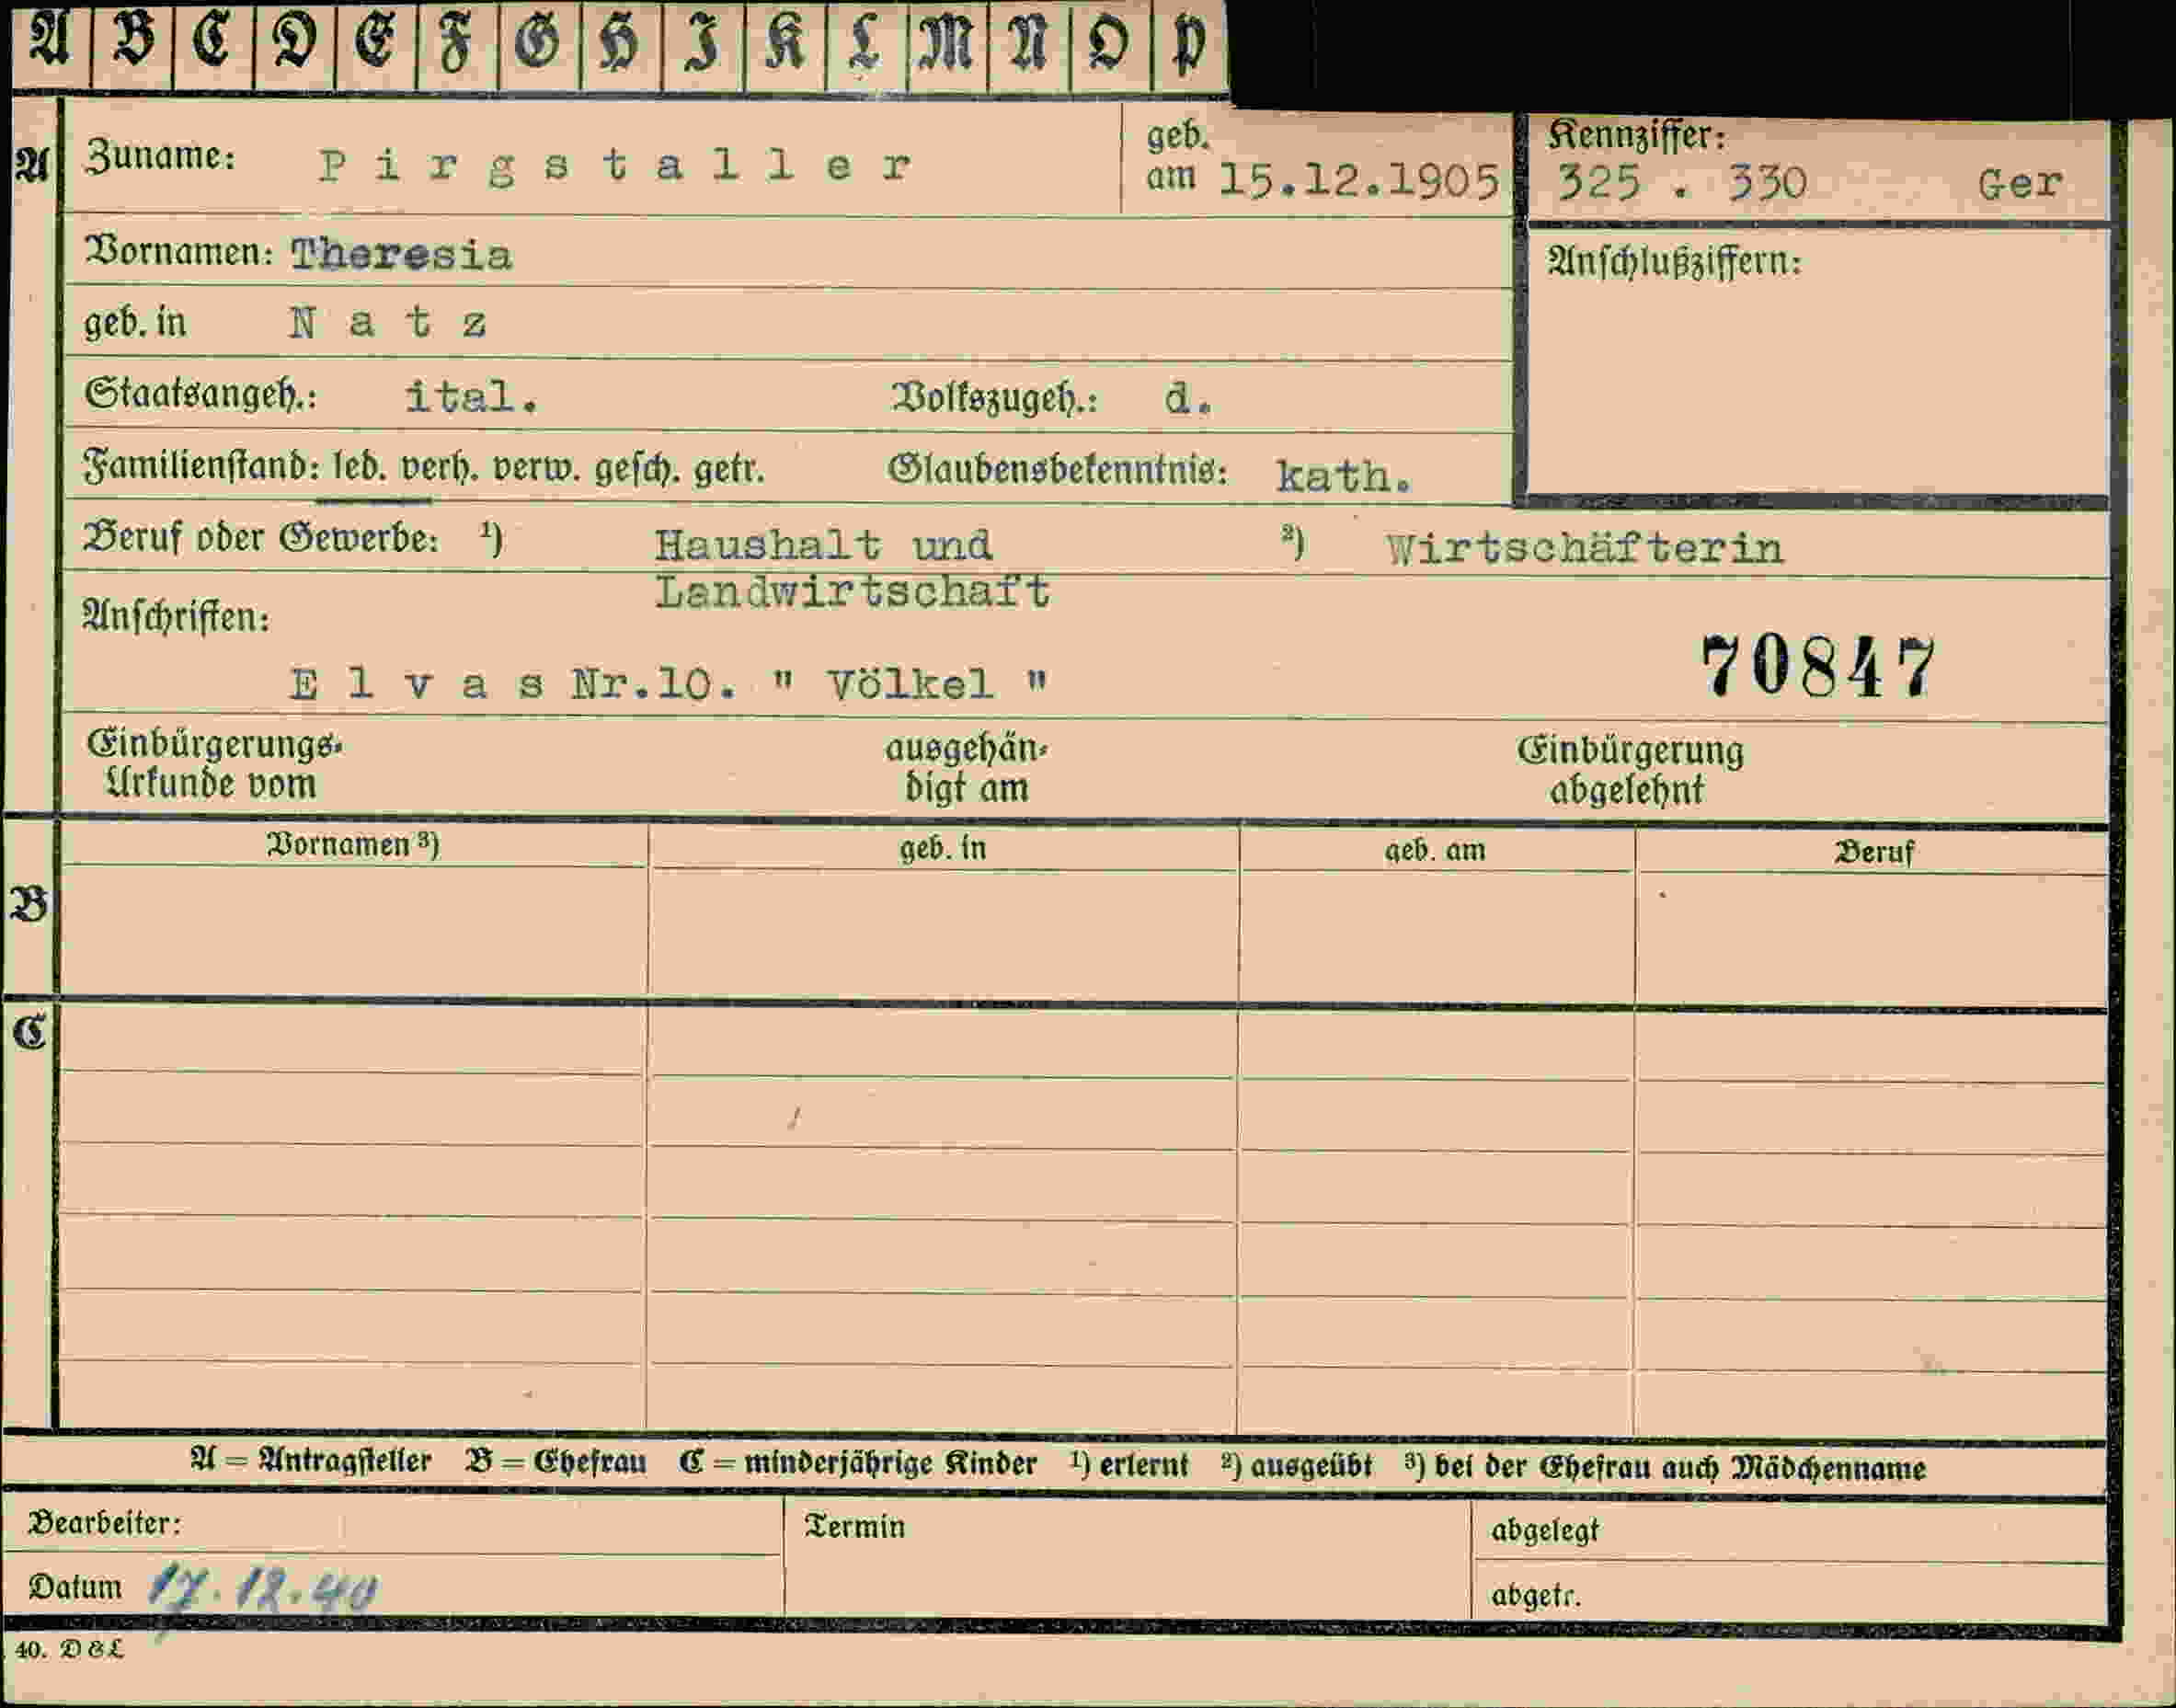 A B C D E F G H I K L M N O P
A Zuname: Pirgstaller geb. am 15.12.1905 Kennziffer: 325 . 330 Ger
Vornamen: Theresia Anschlußziffern:
geb. in Natz
Staatsangeh.: ital. Volkszugeh.: d.
Familienstand: led. verh. verw. gesch. getr. Glaubensbekenntnis: kath.
Beruf oder Gewerbe: ¹) Haushalt und ²) Wirtschäfterin
Landwirtschaft
Anschriften:
Elvas Nr.10. " Völkel " 70847
Einbürgerungs- ausgehän- Einbürgerung
Urkunde vom digt am abgelehnt
Vornamen ³) geb. in geb. am Beruf
B
C
A = Antragsteller B = Ehefrau C = minderjährige Kinder ¹) erlernt ²) ausgeübt ³) bei der Ehefrau auch Mädchenname
Bearbeiter: Termin abgelegt
Datum 17.12.40 abgetr.
40. D&L